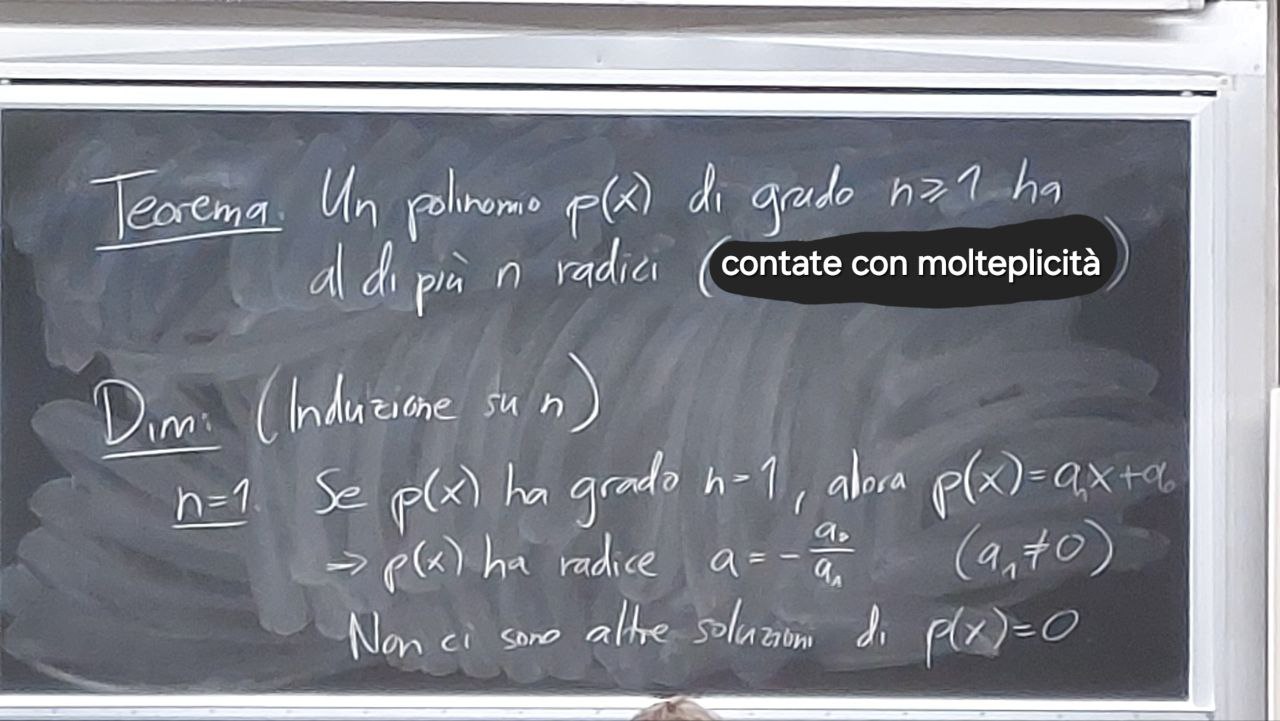 Teorema. Un polinomio p(x) di grado n≥1 ha
al di più n radici (contate con molteplicità)
Dim: (Induzione su n)
n=1. Se p(x) ha grado n=1, alora p(x)=a₁x+a₀
⇒ p(x) ha radice a = - a₀/a₁ (a₁≠0)
Non ci sono altre soluzioni di p(x)=0